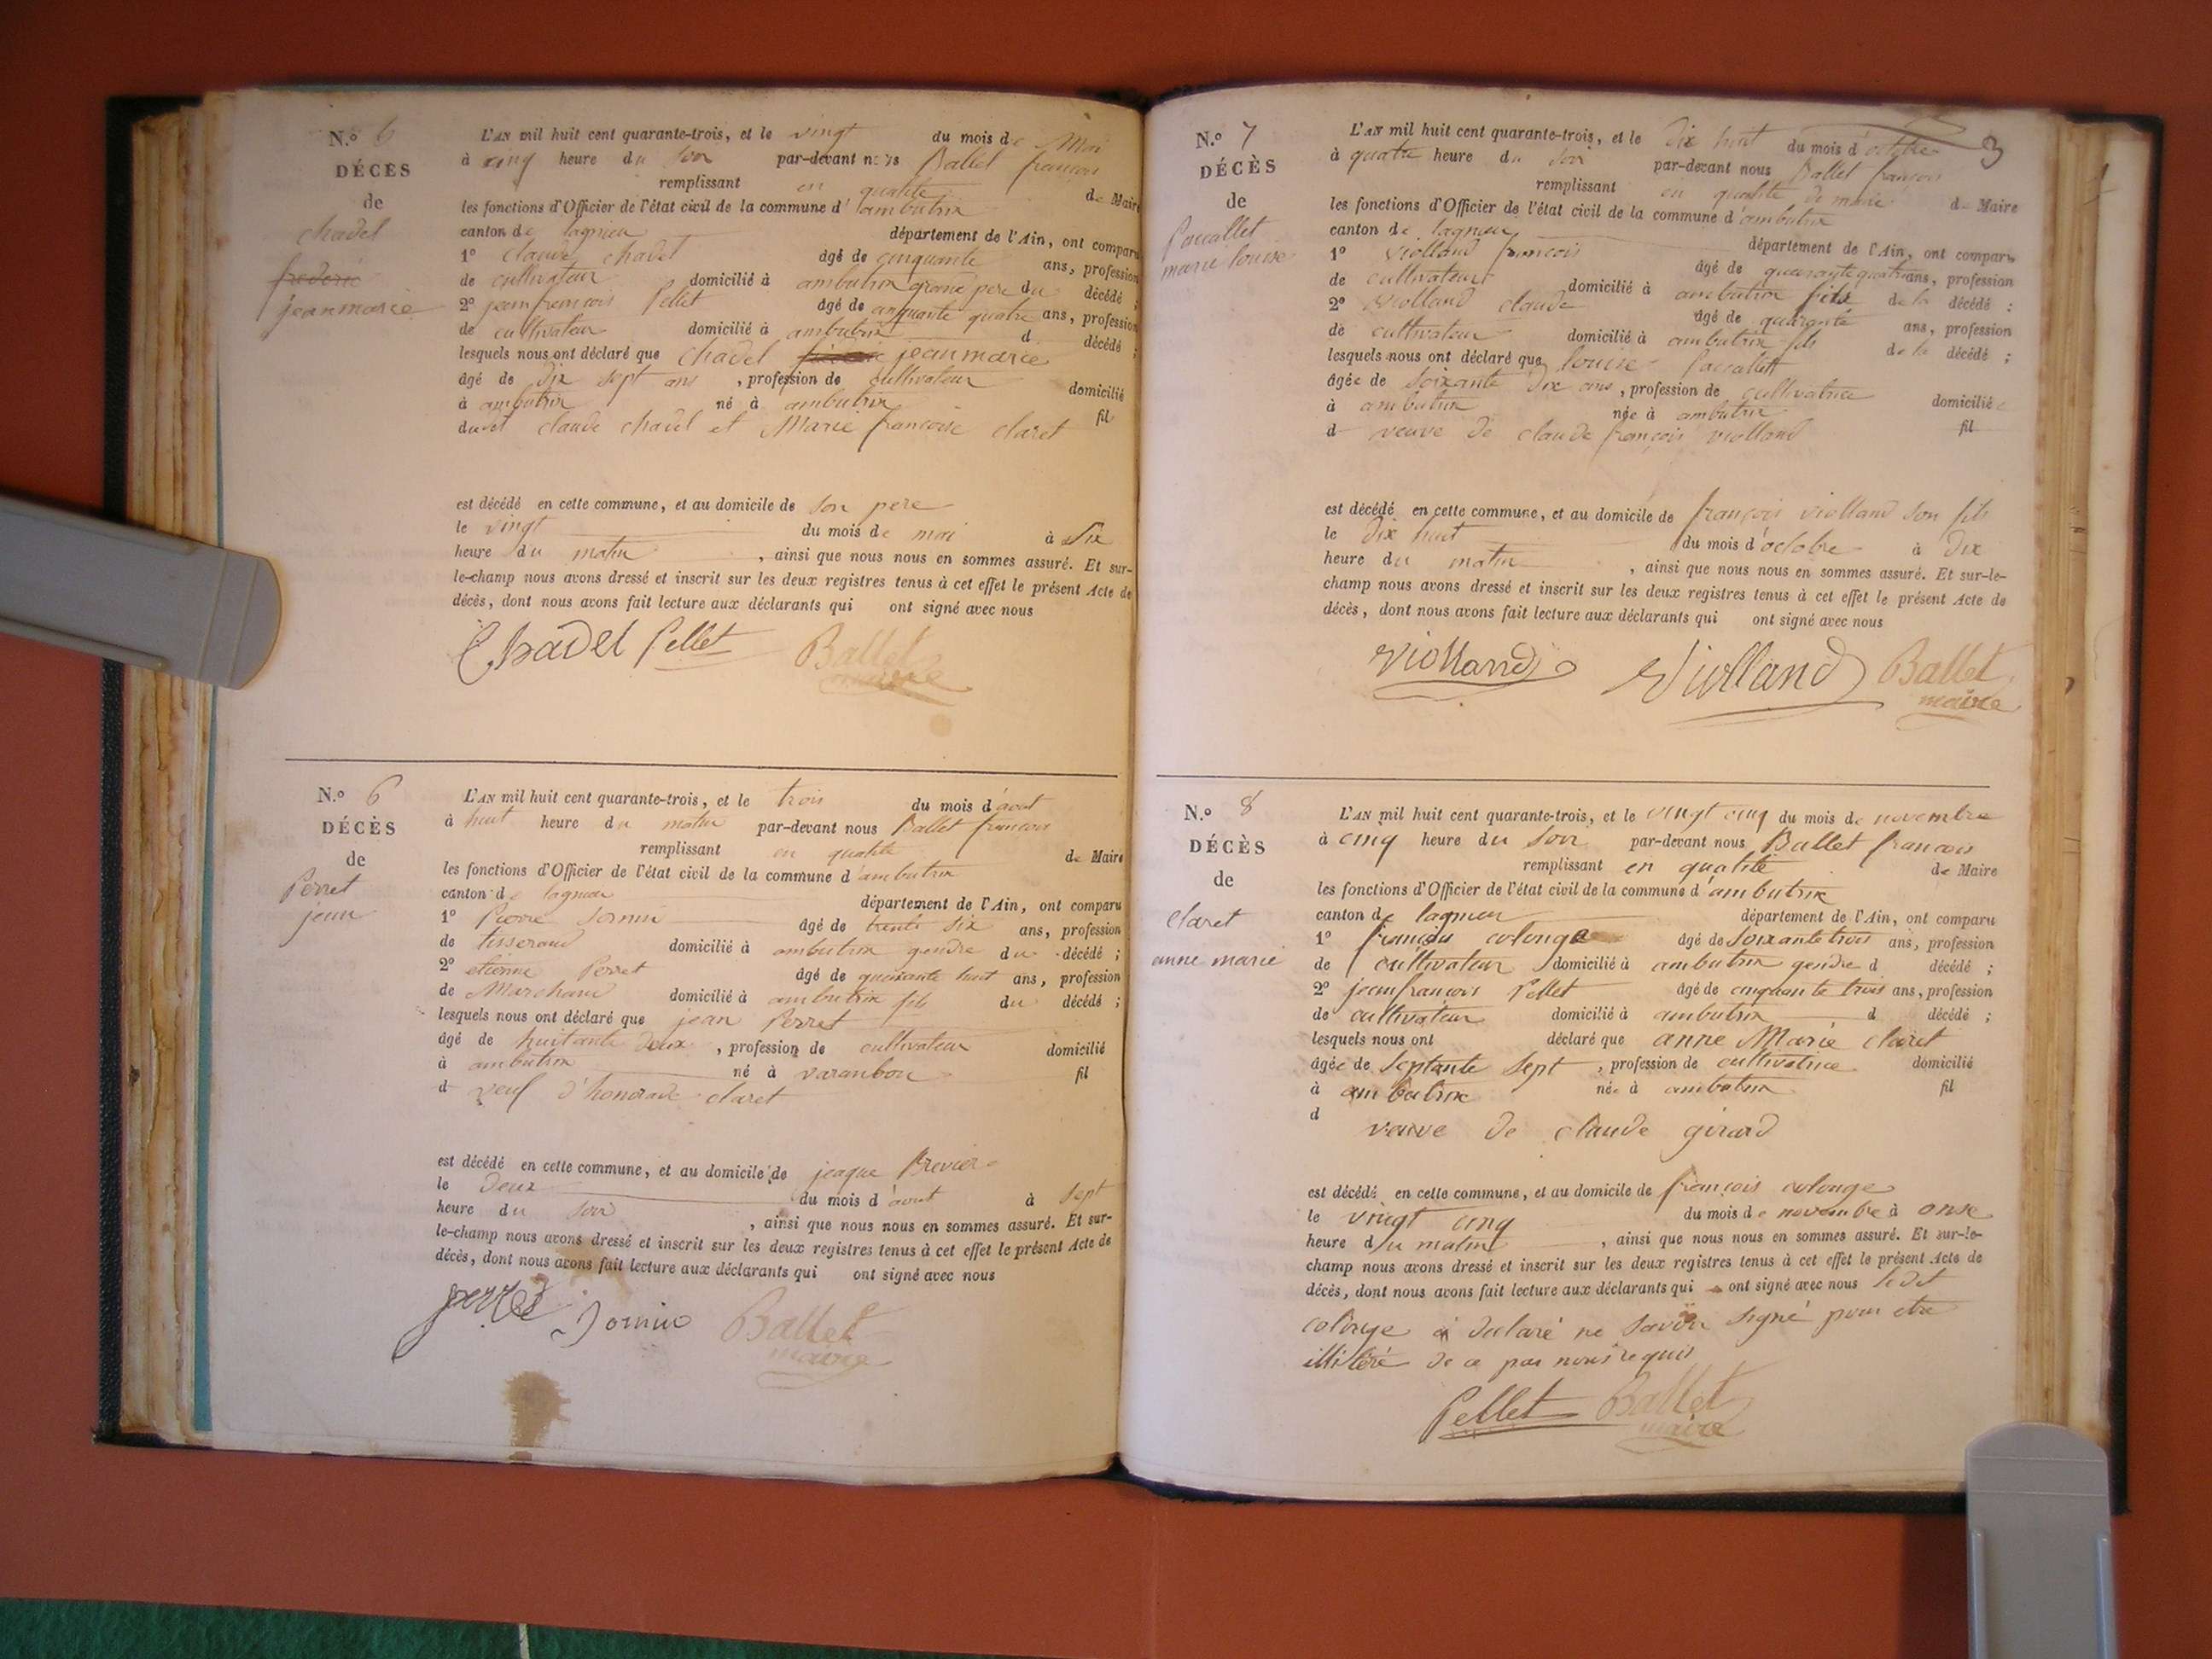 N.º 6
DÉCÈS
de
chadel
frederic
jean marie
L'AN mil huit cent quarante-trois, et le vingt du mois de Mai
à cinq heure du soir par-devant nous Ballet françois
remplissant en qualité de Maire
les fonctions d'Officier de l'état civil de la commune d'ambutrix
canton de lagnieu département de l'Ain, ont comparu
1º claude chadel âgé de cinquante ans, profession
de cultivateur domicilié à ambutrix grand pere du décédé ;
2º jean francois Pellet âgé de cinquante quatre ans, profession
de cultivateur domicilié à ambutrix d décédé ;
lesquels nous ont déclaré que chadel jean marie
âgé de dix sept ans, profession de cultivateur domicilié
à ambutrix né à ambutrix fil
dudit claude chadel et Marie francoise claret
est décédé en cette commune, et au domicile de son pere
le vingt du mois de mai à Six
heure du matin, ainsi que nous nous en sommes assuré. Et sur-
le-champ nous avons dressé et inscrit sur les deux registres tenus à cet effet le présent Acte de
décès, dont nous avons fait lecture aux déclarants qui ont signé avec nous
Chadel Pellet Ballet
maire
N.º 6
DÉCÈS
de
Perret
jean
L'AN mil huit cent quarante-trois, et le trois du mois d'aout
à huit heure du matin par-devant nous Ballet francois
remplissant en qualité de Maire
les fonctions d'Officier de l'état civil de la commune d'ambutrix
canton de lagnieu département de l'Ain, ont comparu
1º Pierre Jomin âgé de trente six ans, profession
de tisserand domicilié à ambutrix gendre du décédé ;
2º etienne Perret âgé de quarante huit ans, profession
de Marchand domicilié à ambutrix fils du décédé ;
lesquels nous ont déclaré que jean Perret
âgé de huitante deux, profession de cultivateur domicilié
à ambutrix né à varambon fil
d veuf d'honorade claret
est décédé en cette commune, et au domicile de jeaque Brevier
le Deux du mois d'aout à sept
heure du soir, ainsi que nous nous en sommes assuré. Et sur-
le-champ nous avons dressé et inscrit sur les deux registres tenus à cet effet le présent Acte de
décès, dont nous avons fait lecture aux déclarants qui ont signé avec nous
perret Jomin Ballet
maire
3
N.º 7
DÉCÈS
de
Paccallet
marie louise
L'AN mil huit cent quarante-trois, et le Dix huit du mois d'octobre
à quatre heure du soir par-devant nous Ballet françois
remplissant en qualité de maire de Maire
les fonctions d'Officier de l'état civil de la commune d'ambutrix
canton de lagnieu département de l'Ain, ont comparu
1º violland francois âgé de quarante quatre ans, profession
de cultivateur domicilié à ambutrix fils de la décédé :
2º violland claude âgé de quarante ans, profession
de cultivateur domicilié à ambutrix fils de la décédé ;
lesquels nous ont déclaré que louise Paccallet
âgée de soixante dix ans, profession de cultivatrice domiciliée
à ambutrix née à ambutrix fil
d veuve de claude françois violland
est décédé en cette commune, et au domicile de françois violland son fils
le Dix huit du mois d'octobre à Dix
heure du matin, ainsi que nous nous en sommes assuré. Et sur-le-
champ nous avons dressé et inscrit sur les deux registres tenus à cet effet le présent Acte de
décès, dont nous avons fait lecture aux déclarants qui ont signé avec nous
Violland Violland Ballet
maire
N.º 8
DÉCÈS
de
claret
anne marie
L'AN mil huit cent quarante-trois, et le vingt cinq du mois de novembre
à cinq heure du soir par-devant nous Ballet francois
remplissant en qualité de Maire
les fonctions d'Officier de l'état civil de la commune d'ambutrix
canton de lagnieu département de l'Ain, ont comparu
1º françois colonge âgé de soixante trois ans, profession
de cultivateur domicilié à ambutrix gendre d décédé ;
2º jean françois Pellet âgé de cinquante trois ans, profession
de cultivateur domicilié à ambutrix d décédé ;
lesquels nous ont déclaré que anne Marie claret
âgée de septante sept, profession de cultivatrice domicilié
à ambutrix née à ambutrix fil
d
veuve de claude girard
est décédé en cette commune, et au domicile de françois colonge
le vingt cinq du mois de novembre à onse
heure du matin, ainsi que nous nous en sommes assuré. Et sur-le-
champ nous avons dressé et inscrit sur les deux registres tenus à cet effet le présent Acte de
décès, dont nous avons fait lecture aux déclarants qui ont signé avec nous ledit
colonge a declaré ne savoir signé pour etre
illiteré de ce par nous requis
Pellet Ballet
maire